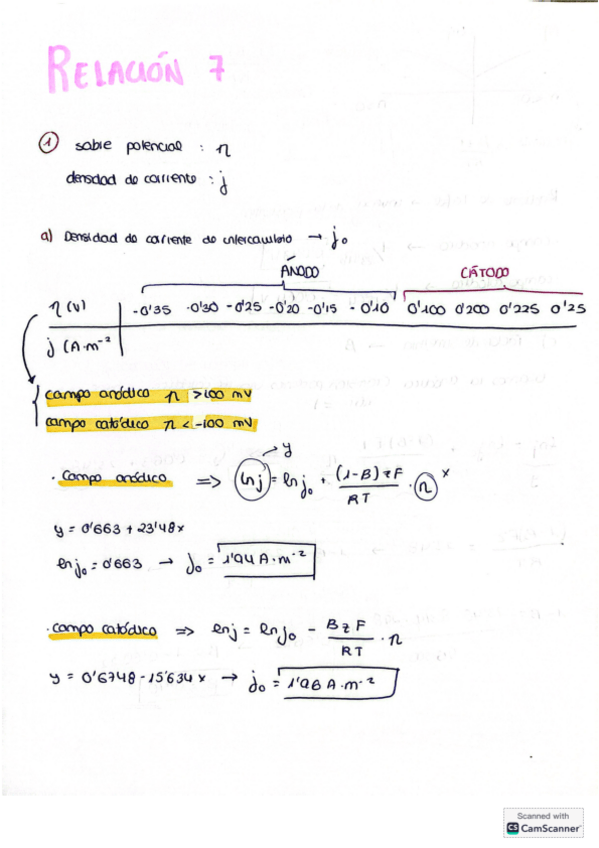 RELACIÓN 7
① sobre potencial : η
densidad de corriente : j
a) Densidad de corriente de intercambio → j₀
ÁNODO CÁTODO
η (V) -0'35 -0'30 -0'25 -0'20 -0'15 -0'10 0'100 0'200 0'225 0'25
j (A·m⁻²
campo anódico η >100 mV
campo catódico η < -100 mV
y
· Campo anódico => ln j = ln j₀ + (1-B) z F / RT · η x
y = 0'663 + 23'48x
ln j₀ = 0'663 → j₀ = 1'94 A·m⁻²
· campo catódico => ln j = ln j₀ - B z F / RT · η
y = 0'6748 - 15'634 x → j₀ = 1'96 A·m⁻²
Scanned with
CS CamScanner